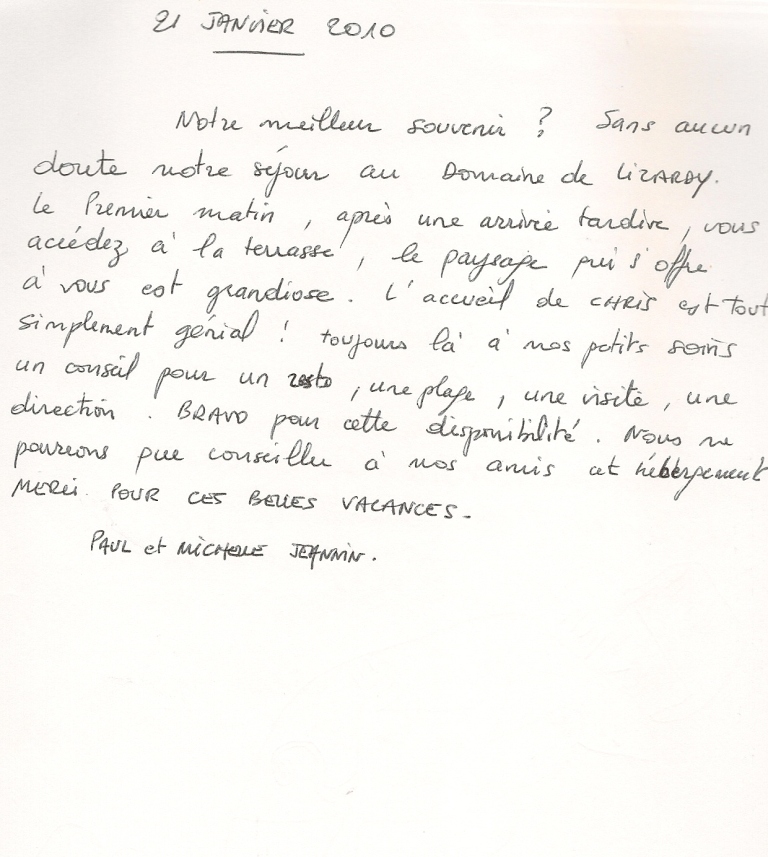 21 JANVIER 2010
Notre meilleur souvenir ? Sans aucun
doute notre séjour au Domaine de LIZARDY.
Le Premier matin, après une arrivée tardive, vous
accédez à la terrasse, le paysage qui s'offre
à vous est grandiose. L'accueil de CHRIS est tout
simplement génial ! toujours là à nos petits soins
un conseil pour un resto, une plage, une visite, une
direction. BRAVO pour cette disponibilité. Nous ne
pourrons que conseiller à nos amis cet hébergement
MERCI POUR CES BELLES VACANCES.
PAUL et MICHELLE JEANNIN.